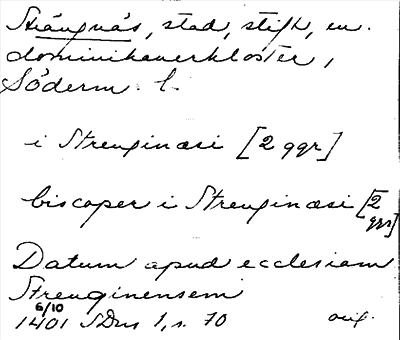 Strängnäs, stad, stift, en.
dominikanerkloster,
Söderm. l.
i Strenginæsi [2 ggr]
biscoper i Strenginæsi [2 ggr]
Datum apud ecclesiam
Strenginensem
6/10
1401 SDns 1, s. 70 orig.